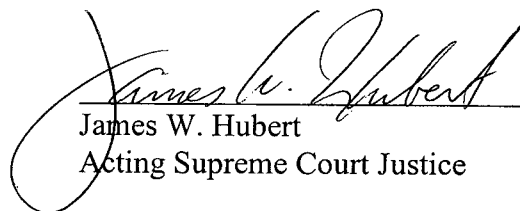 James W. Hubert
James W. Hubert
Acting Supreme Court Justice